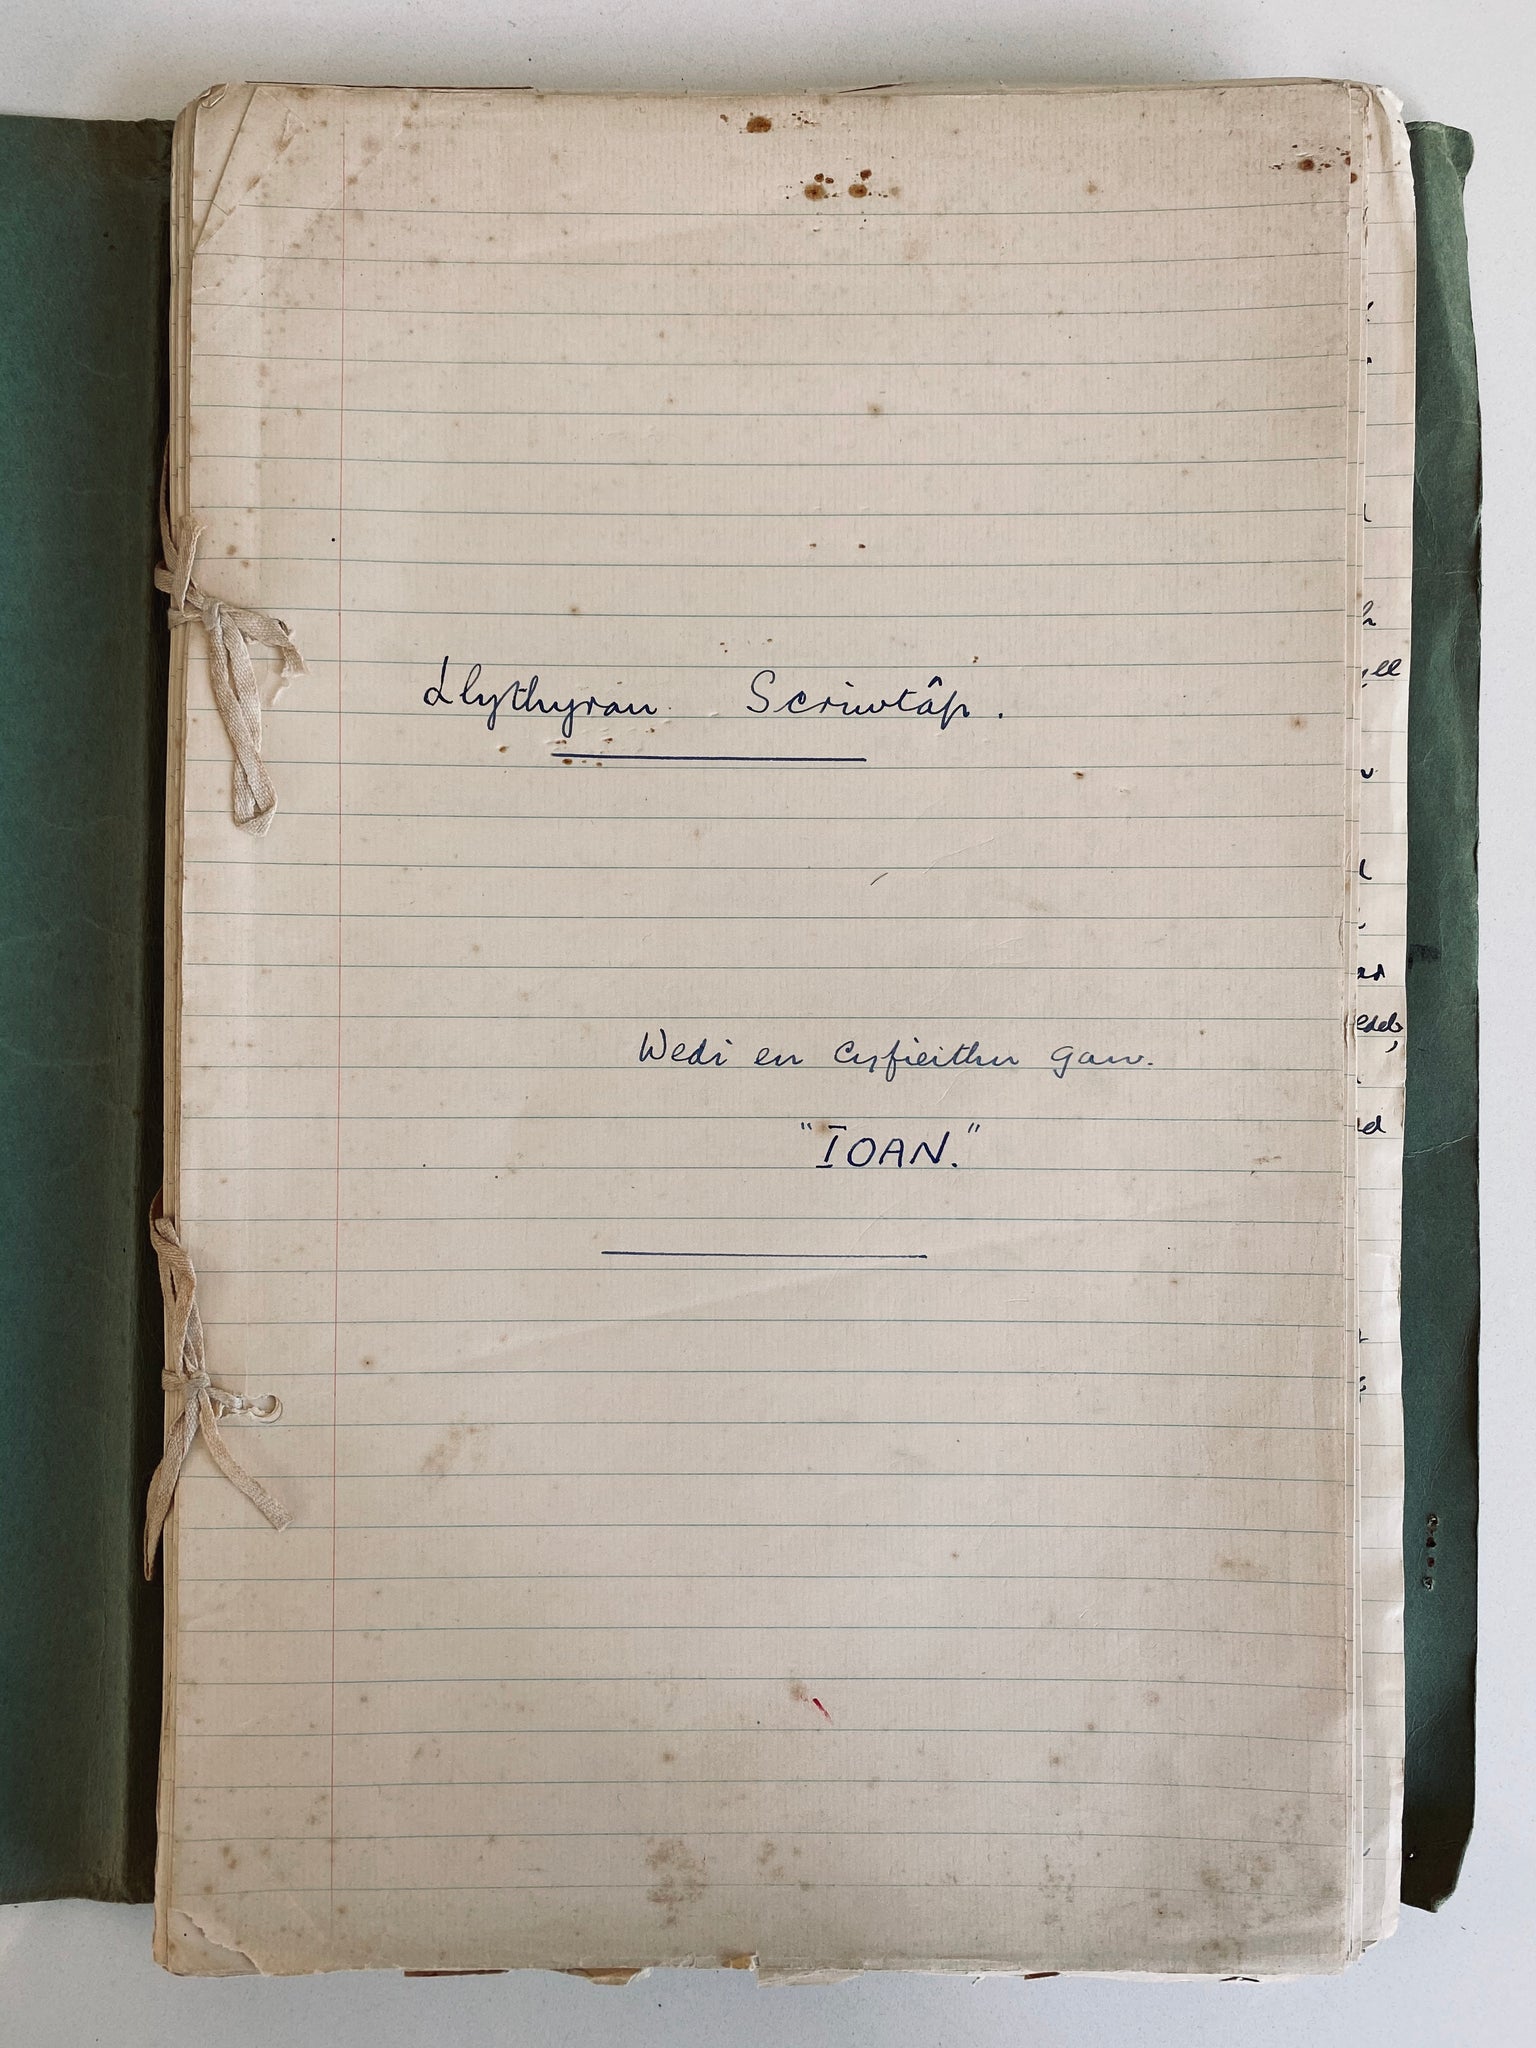 Llythyrau Scriwtâp.
Wedi eu cyfieithu gan.
"IOAN."